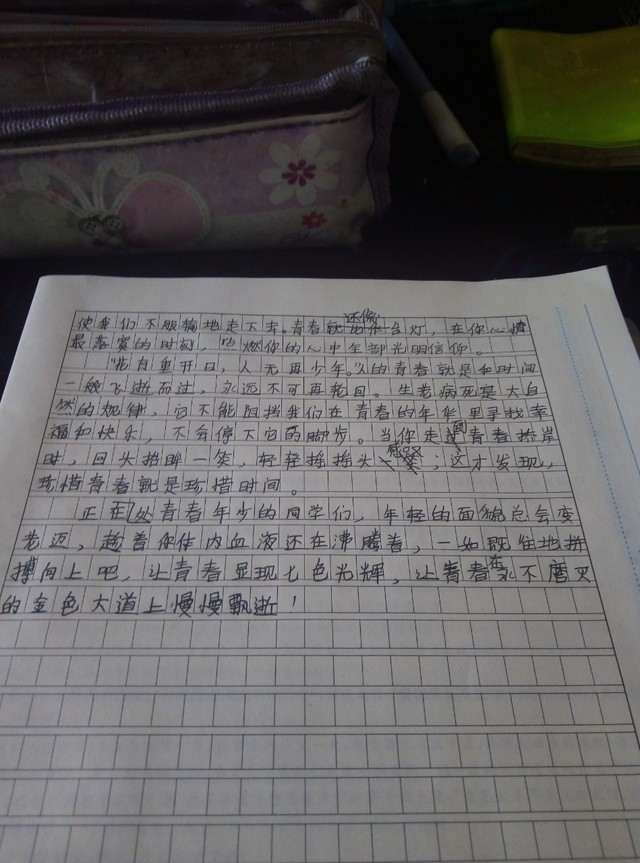 使我们不服输地走下来。青春就还像台灯,在你心情
最落寞的时刻,点燃你的心中全部光明信仰。
"花有重开日,人无再少年。"人的青春就是和时间
一般飞逝而过,永远不可再轮回。生老病死是大自
然的规律,它不能阻挡我们在青春的年华里寻找幸
福和快乐,不会停下它的脚步。当你走到青春桥岸
时,回头拈眸一笑,轻轻摇摇头感叹;这才发现,
珍惜青春就是珍惜时间。
正在处青春年少的同学们,年轻的面貌总会变
老迈,趁着你体内血液还在沸腾着,一如既往地拼
搏向上吧,让青春显现七色光辉,让青春在永不磨灭
的金色大道上慢慢飘逝!